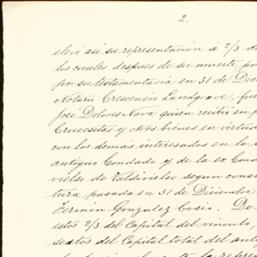 2.
elevó así su representación á 2/3 de
los cuales despues de su muerte, po
por su testamentaria en 31 de Dic
Notario Crescencio Landgrave, fue
José Dolores Nava quien recibió en p
Crucesitas y otros bienes en virtud
con los demas interesados en la
antiguo Condado y de la Con
vielso de Valdivielso segun cons
tura pasada en 31 de Diciembre
Fermin Gonzalez Cosio. De
estos 2/3 del Capital del vínculo,
sextos del Capital total del ant